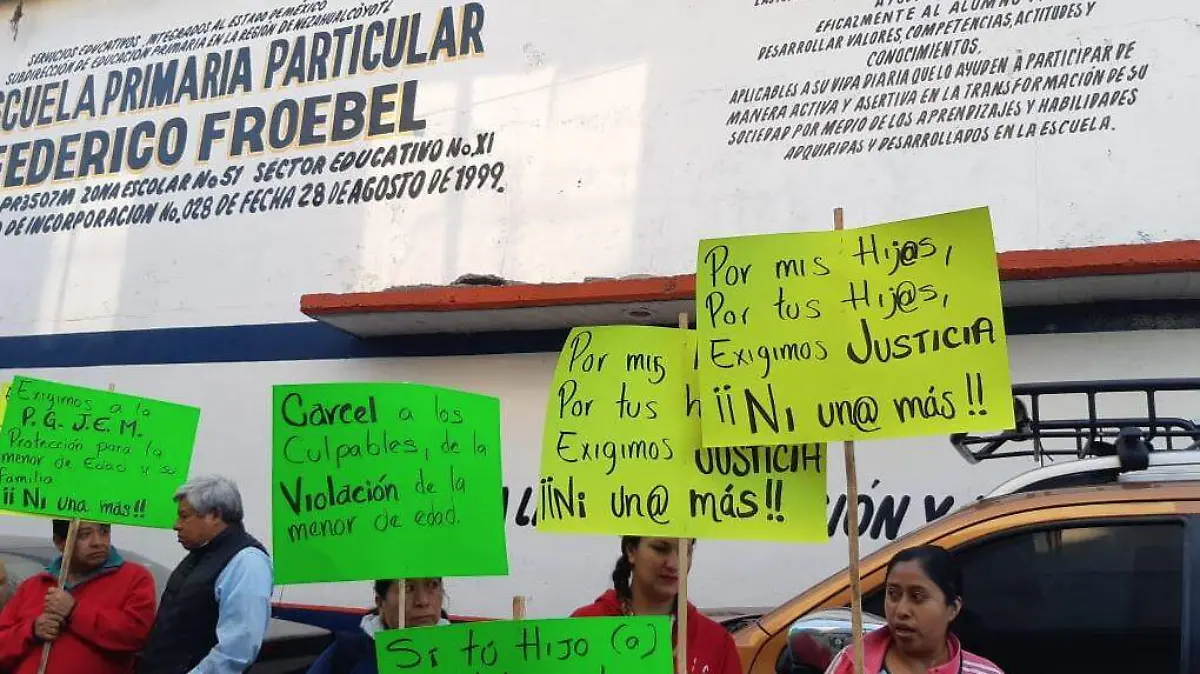 SERVICIOS EDUCATIVOS INTEGRADOS AL ESTADO DE MÉXICO
SUBDIRECCIÓN DE EDUCACIÓN PRIMARIA EN LA REGIÓN DE NEZAHUALCÓYOTL
SCUELA PRIMARIA PARTICULAR
FEDERICO FROEBEL
PR3507M ZONA ESCOLAR No. 51 SÉCTOR EDUCATIVO No. XI
O DE INCORPORACIÓN No. 028 DE FECHA 28 DE AGOSTO DE 1999.
EFICAZMENTE AL ALUMNO
DESARROLLAR VALORES, COMPETENCIAS, ACTITUDES Y
CONOCIMIENTOS.
APLICABLES A SU VIDA DIARIA QUE LO AYUDEN A PARTICIPAR DE
MANERA ACTIVA Y ASERTIVA EN LA TRANSFORMACIÓN DE SU
SOCIEDAD POR MEDIO DE LOS APRENDIZAJES Y HABILIDADES
ADQUIRIDAS Y DESARROLLADOS EN LA ESCUELA.
Exigimos a la
P.G.J.E.M.
Protección para la
menor de Edad y su
familia
¡¡Ni una más!!
Carcel a los
Culpables, de la
Violación de la
menor de edad.
Por mis
Por tus h
Exigimos
JUSTICIA
¡¡Ni un@ más!!
Por mis Hij@s,
Por tus Hij@s,
Exigimos JUSTICIA
¡¡Ni un@ más!!
Si tú Hijo (a)